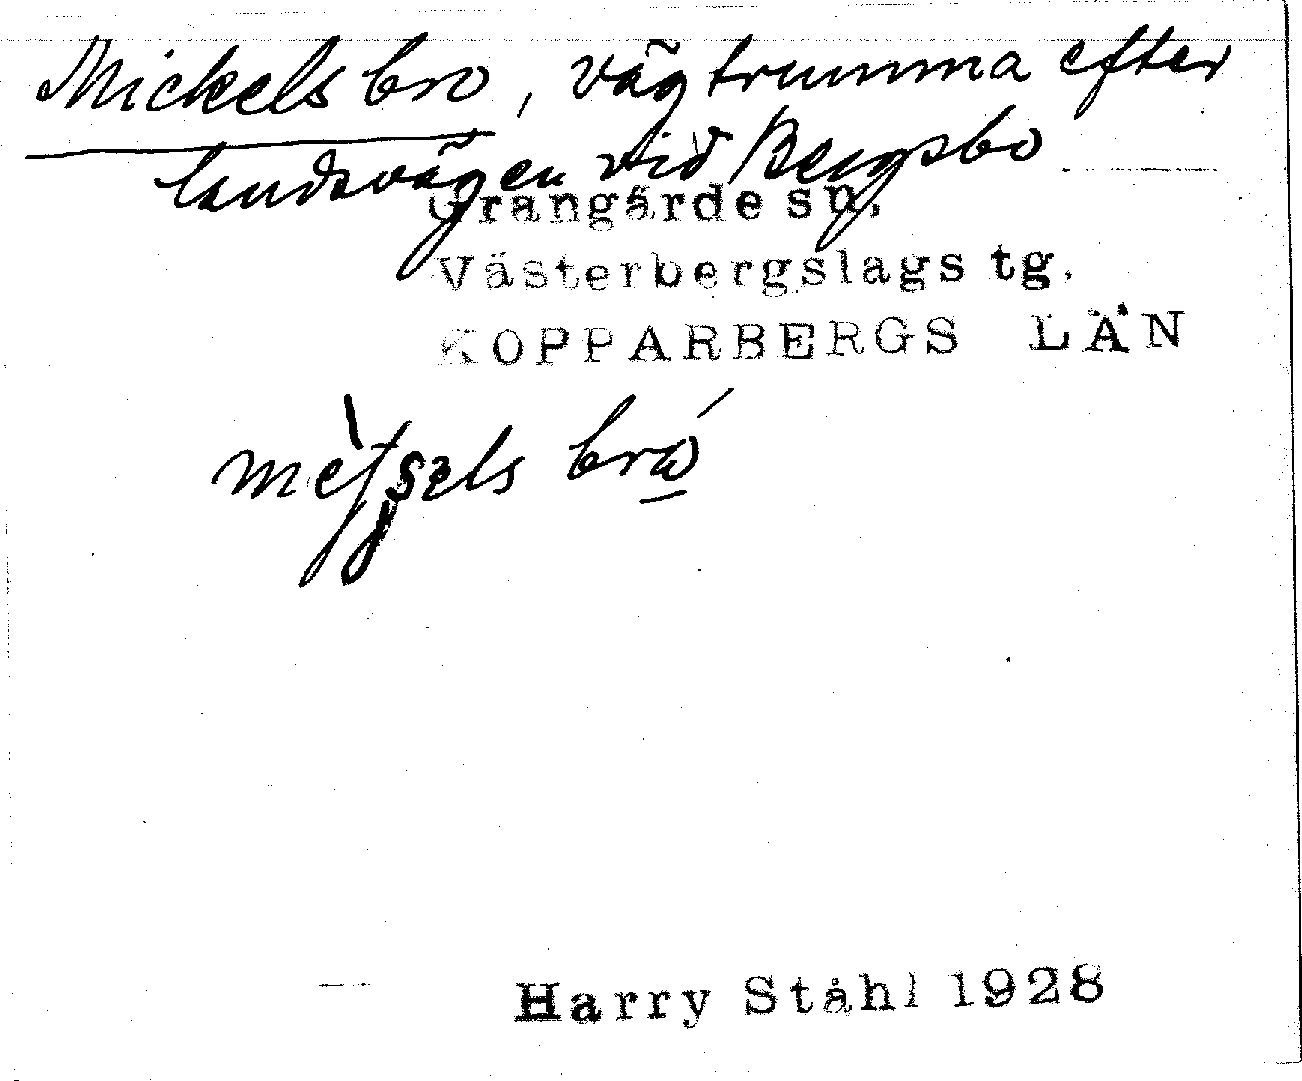 Mickelsbro, vägtrumma efter
landsvägen vid Bergsbo
Grangärde sn.
Västerbergslags tg.
KOPPARBERGS LÄN
Harry Ståhl 1928